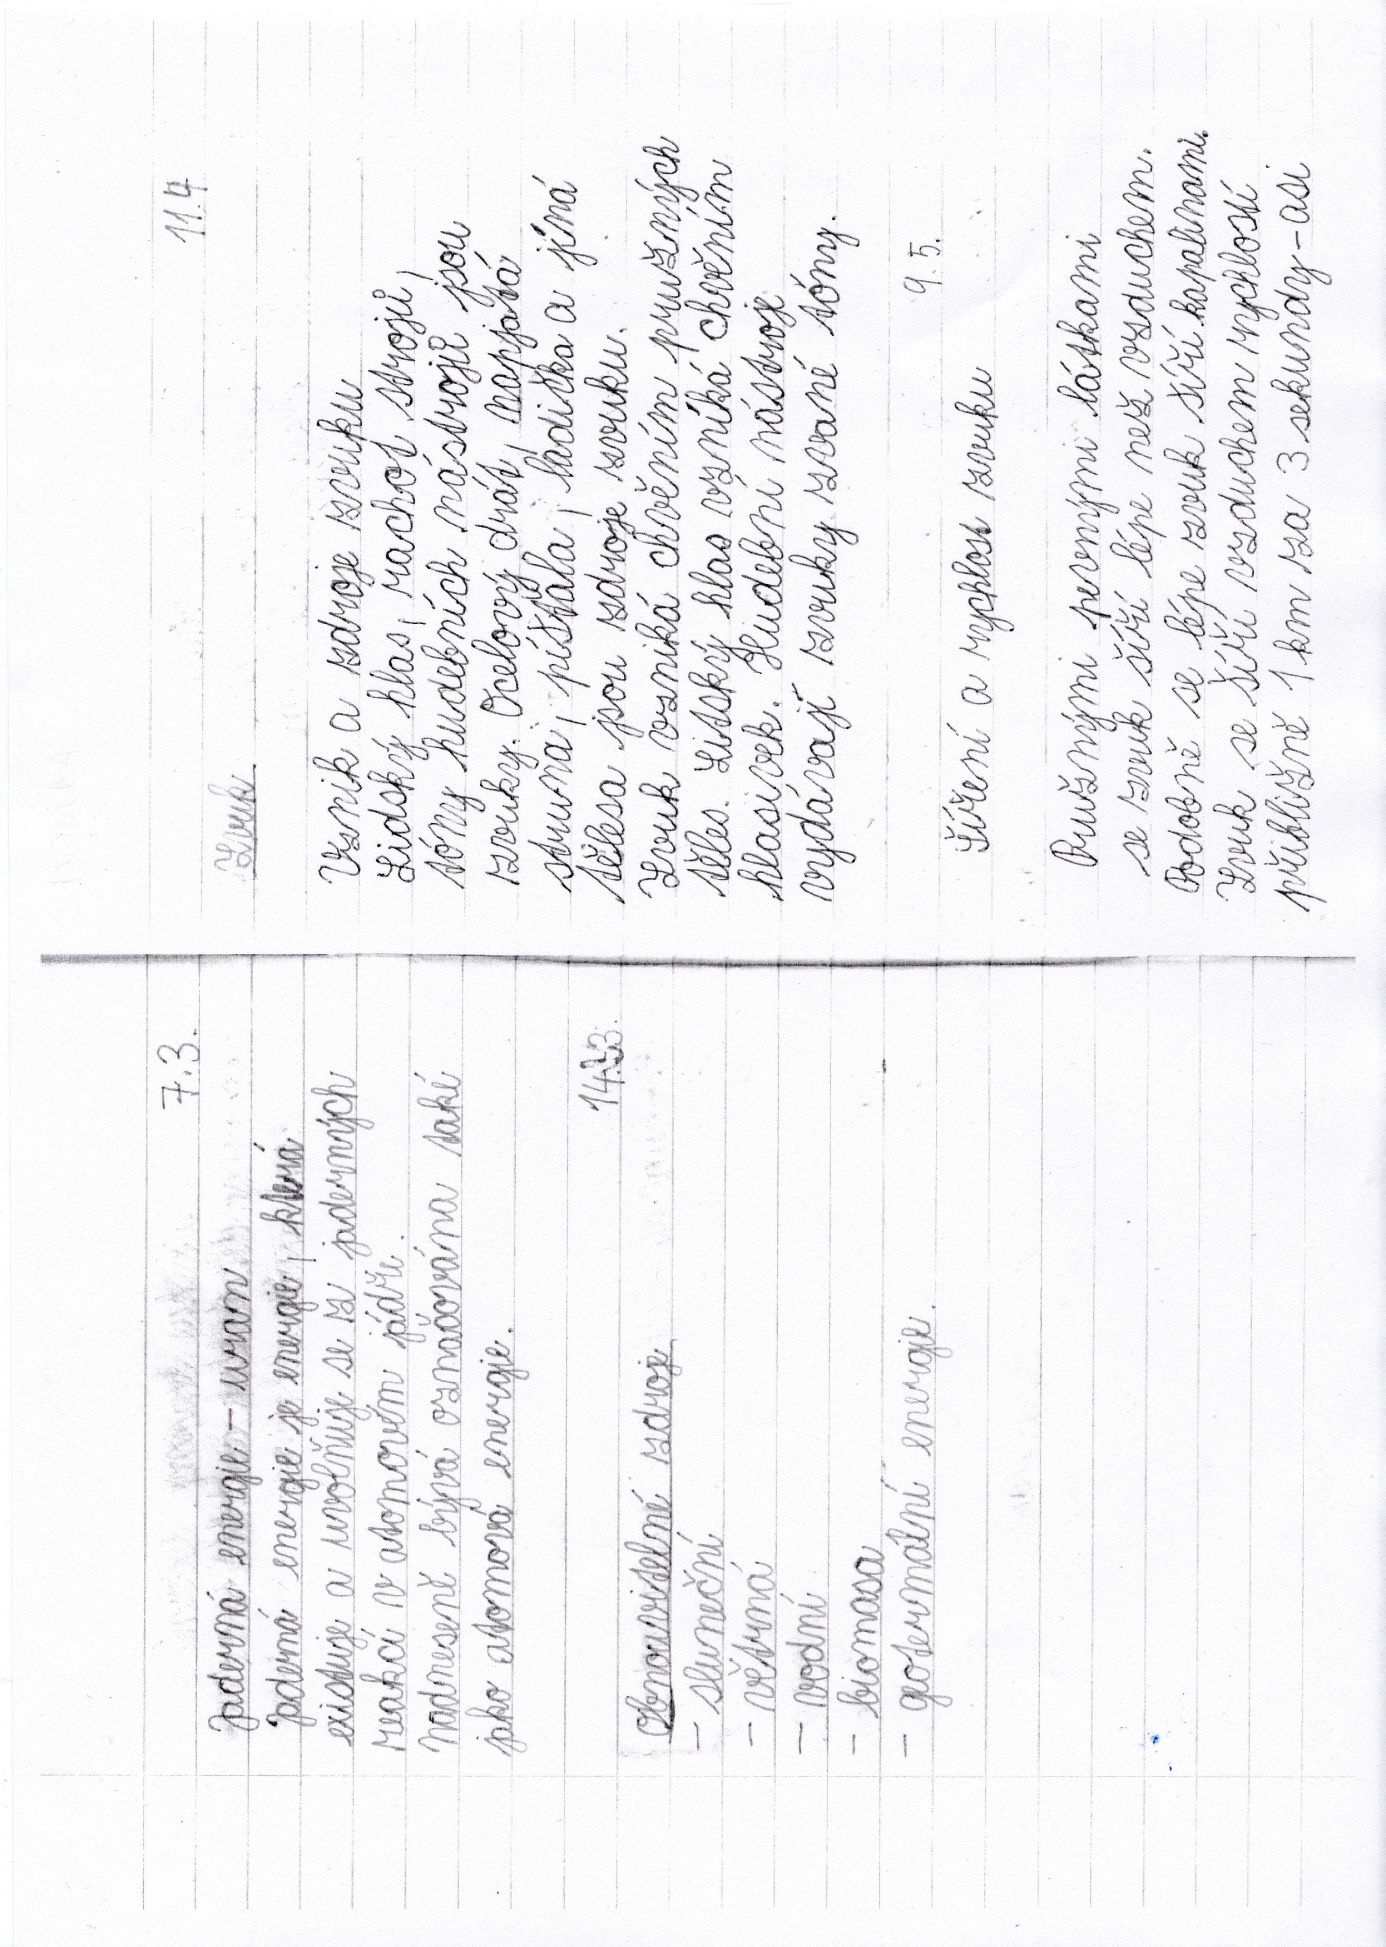 7.3.
Jaderná energie – uran
Jaderná energie je energie, která
existuje a uvolňuje se z jaderných
reakcí v atomovém jádře.
Nadneseně bývá označována také
jako atomová energie.
14.3.
Obnovitelné zdroje
– sluneční
– větrná
– vodní
– biomasa
– geotermální energie.
11.4
Zvuk
Vznik a zdroje zvuku
Lidský hlas, rachot strojů,
tóny hudebních nástrojů jsou
zvuky. Ocelový drát, napjatá
struna, píšťala, ladička a jiná
tělesa jsou zdroje zvuku.
Zvuk vzniká chvěním pružných
těles. Litský hlas vzniká chvěním
hlasivek. Hudební nástroje
vydávají zvuky zvané tóny.
9.5.
Šíření a rychlost zvuku
Pružnými pevnými látkami
se zvuk šíří lépe než vzduchem.
Podobně se lépe zvuk šíří kapalinami.
Zvuk se šíří vzduchem rychlostí
přibližně 1 km za 3 sekundy – asi